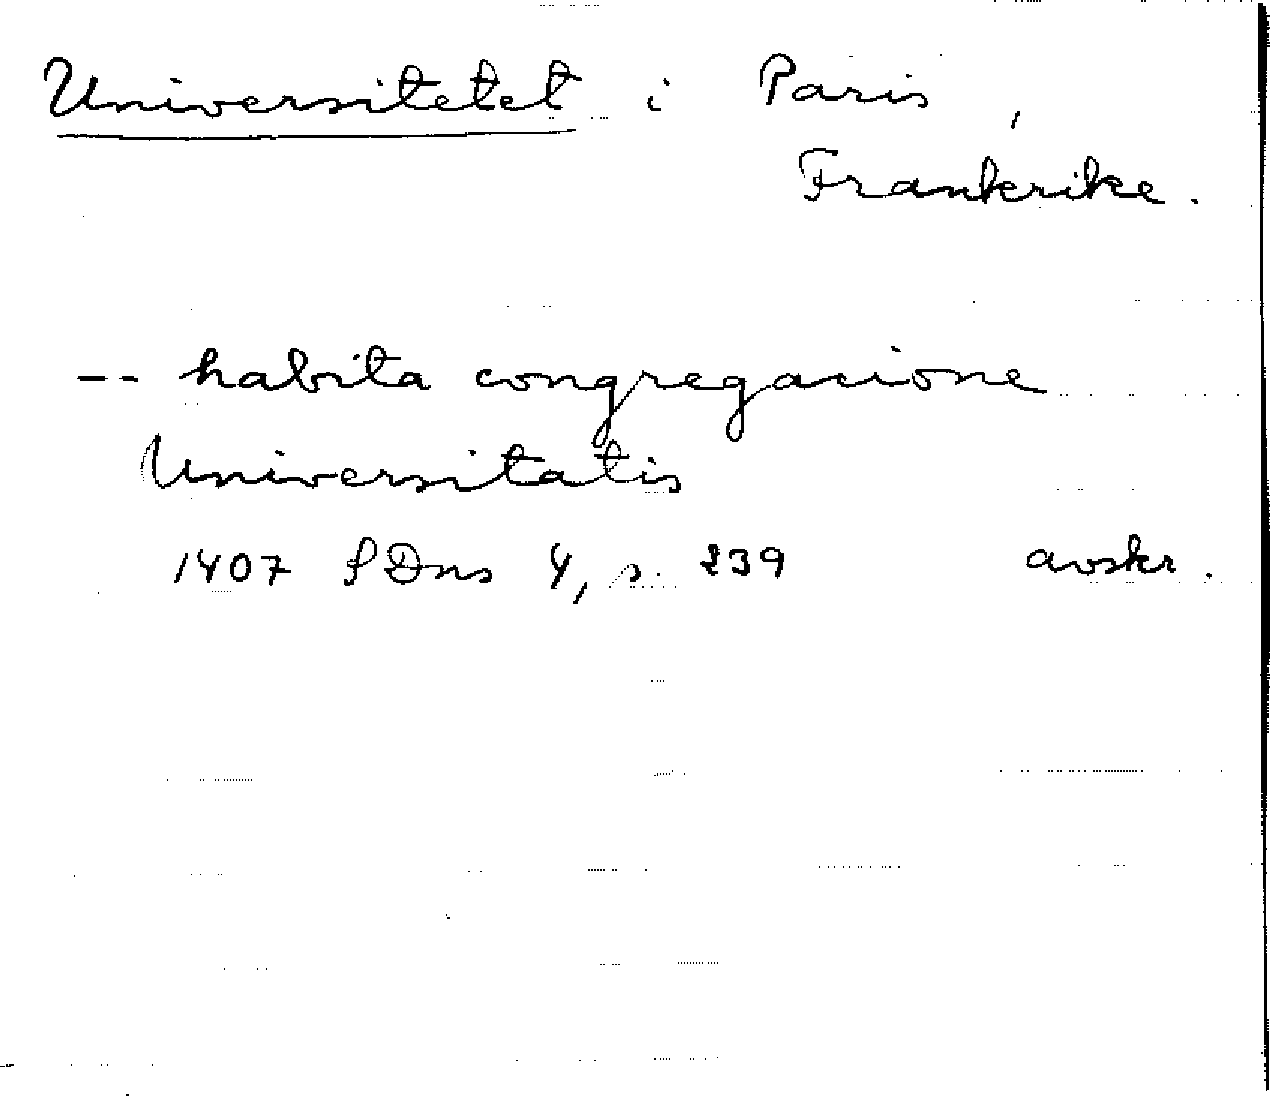 Universitetet i Paris,
Frankrike.
-- habita congregacione
Universitatis
1407 SDns 4, s. 239 avskr.